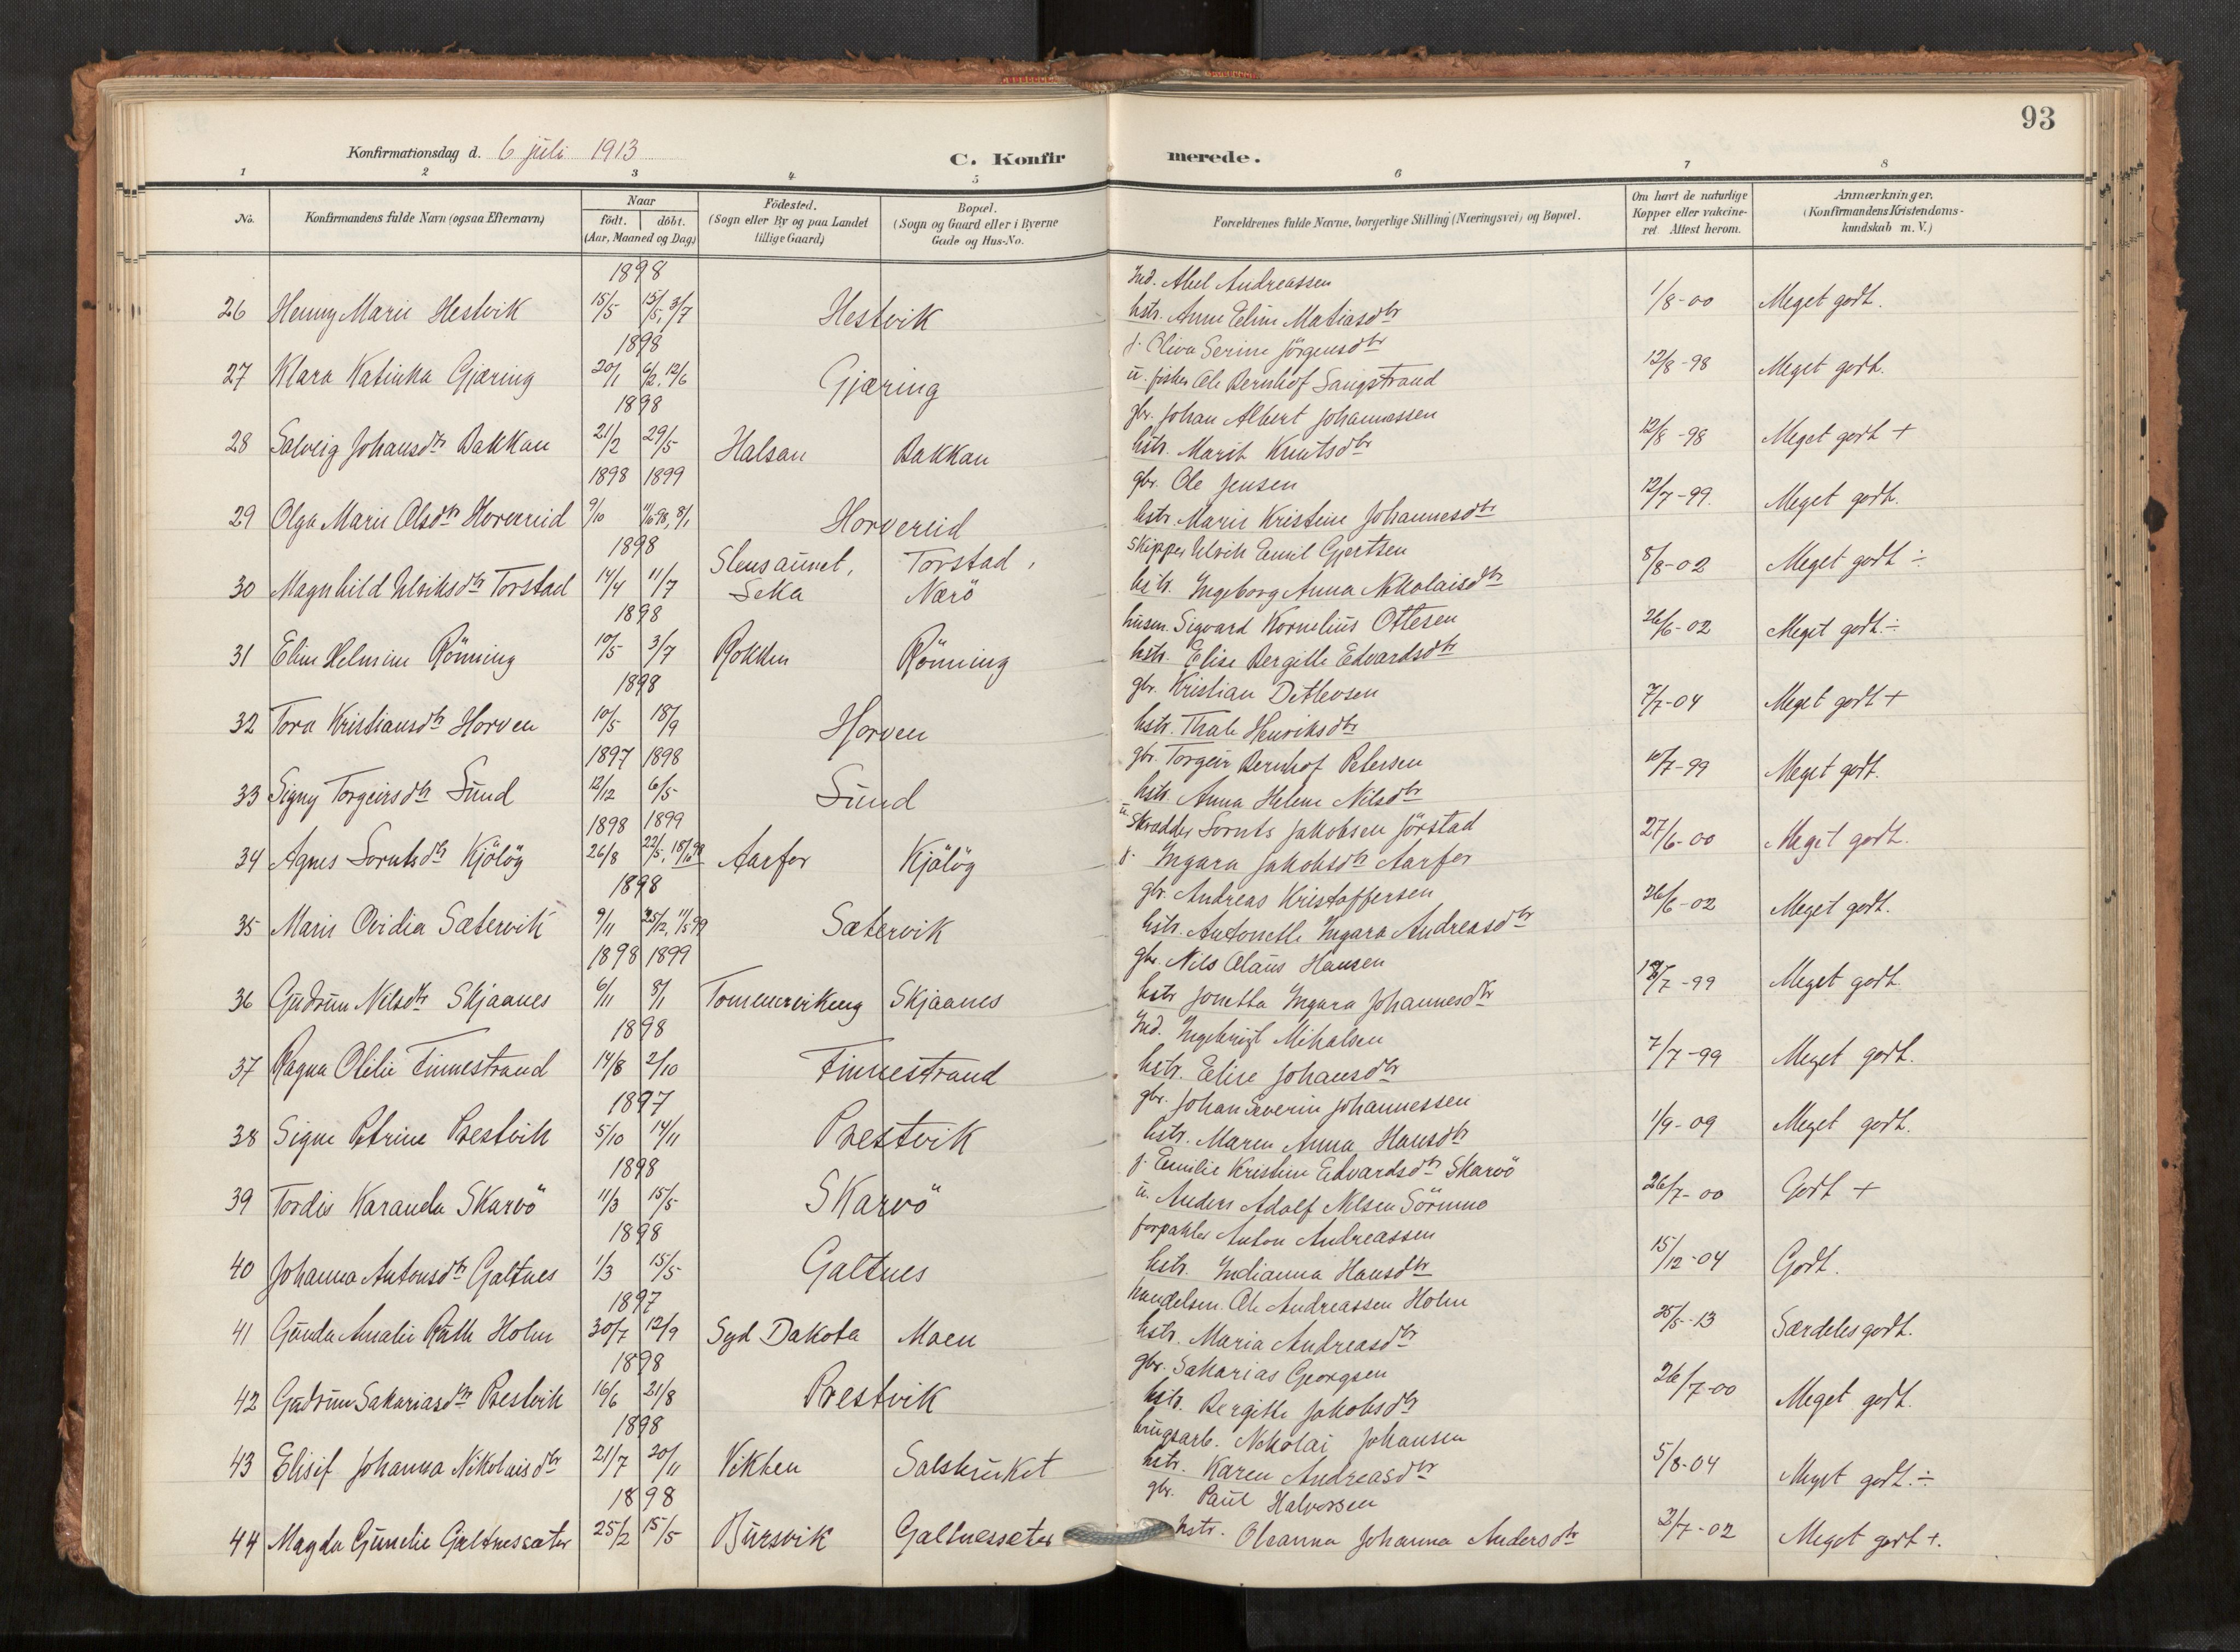 93
Konfirmationsdag d. 6 juli 1913
C. Konfirmerede.
1 2 3 4 5 6 7 8
No.
Konfirmandens fulde Navn (ogsaa Efternavn)
Naar
födt. döbt.
(Aar, Maaned og Dag)
Födested.
(Sogn eller By og paa Landet
tillige Gaard)
Bopæl.
(Sogn og Gaard eller i Byerne
Gade og Hus-No.
Forældrenes fulde Navne, borgerlige Stilling (Næringsvei) og Bopæl.
Om havt de naturlige
Kopper eller vakcine-
ret Attest herom.
Anmærkninger.
(Konfirmandens Kristendoms-
kundskab m. V.)
1898
Ind. Abel Andreassen
26 Henny Marie Hestvik 15/5 15/5, 3/7 Hestvik hstr. Anne Eline Matiasdtr 1/8-00 Meget godt.
1898
f. Oliva Serine Jörgensdtr
27 Klara Katinka Gjæring 20/1 6/2, 12/6 Gjæring u. fisker Ole Bernhof Langstrand 12/8-98 Meget godt.
1898
gbr. Johan Albert Johannessen
28 Solveig Johansdtr Bakkan 21/2 29/5 Halsan Bakkan hstr. Marit Knutsdtr 12/8-98 Meget godt +
1898 1899
gbr. Ole Jensen
29 Olga Marie Olsdtr Horvereid 9/10 11/10 98, 8/1 Horvereid hstr. Marie Kristine Johannesdtr 12/7-99. Meget godt.
1898
Skipper Ulrik Emil Gjertsen
30 Magnhild Ulriksdtr Torstad 14/4 11/7 Slensaunet, Leka Torstad, Nærö hstr. Ingeborg Anna Nikolaisdtr 8/8-02 Meget godt ÷
1898
husm. Sigvard Kornelius Ottesen
31 Eline Helmine Rönning 10/5 3/7 Rokken Rönning hstr. Elise Bergitte Edvardsdtr 26/6-02 Meget godt.÷
1898
gbr. Kristian Ditlevsen
32 Tora Kristiansdtr Horven 10/5 18/9 Horven hstr. Thale Henriksdtr 7/7-04 Meget godt +
1897 1898
gbr. Torgeir Bernhof Petersen
33 Signy Torgeirsdtr Sund 12/12 6/5 Sund hstr. Anna Helene Nilsdtr 10/7-99 Meget godt.
1898 1899
u. Skrædder Lornts Jakobsen Jörstad
34 Agnes Lorntsdtr Kjölög 26/8 22/5, 18/10 98 Aarfor Kjölög f. Ingara Jakobsdtr Aarfor 27/6-00 Meget godt.
1898
gbr. Andreas Kristoffersen
35 Marie Ovidia Sætervik 9/11 25/12, 11/5 99 Sætervik hstr. Antonette Ingara Andreasdtr 26/6-02 Meget godt.
1898 1899
gbr. Nils Olaus Hansen
36 Gudrun Nilsdtr Skjaanes 6/11 8/1 Tommervikeng Skjaanes hstr Jonetta Ingara Johannesdtr 12/7-99 Meget godt
1898
Ind. Ingebrigt Mikalsen
37 Ragna Otilie Finnestrand 14/8 2/10 Finnestrand hstr. Elise Johansdtr 7/7-99 Meget godt.
1897
gbr. Johan Severin Johannessen
38 Signe Petrine Prestvik 5/10 14/11 Prestvik hstr. Maren Anna Hansdtr 1/9-09 Meget godt.
1898
f. Emilie Kristine Edvardsdtr Skarvö
39 Tordis Karanda Skarvö 11/3 15/5 Skarvö u. Anders Adolf Nilsen Sörmno 26/7-00 Godt +
1898
forpakter Anton Andreassen
40 Johanna Antonsdtr Galtnes 1/3 15/5 Galtnes hstr. Indianna Hansdtr 15/12-04 Godt.
1897
Handelsm. Ole Andreassen Holm
41 Gunda Amalie Ruth Holm 30/7 12/9 Syd Dakota Moen hstr. Maria Andreasdtr 25/5-13 Særdeles godt.
1898
gbr. Sakarias Georgsen
42 Gudrun Sakariasdtr Prestvik 16/6 21/8 Prestvik hstr. Bergitte Jakobsdtr 26/7-00 Meget godt.
1898
brugsarb. Nikolai Johansen
43 Elisif Johanna Nikolaisdtr 21/7 20/11 Vikken Salsbruket hstr. Karen Andreasdtr 5/8-04 Meget godt.÷
1898
gbr. Paul Halvorsen
44 Magda Gunelie Galtnessæter 25/2 15/5 Bursvik Galtnessæter hstr. Oleanna Johanna Andersdtr 3/7-02 Meget godt +.